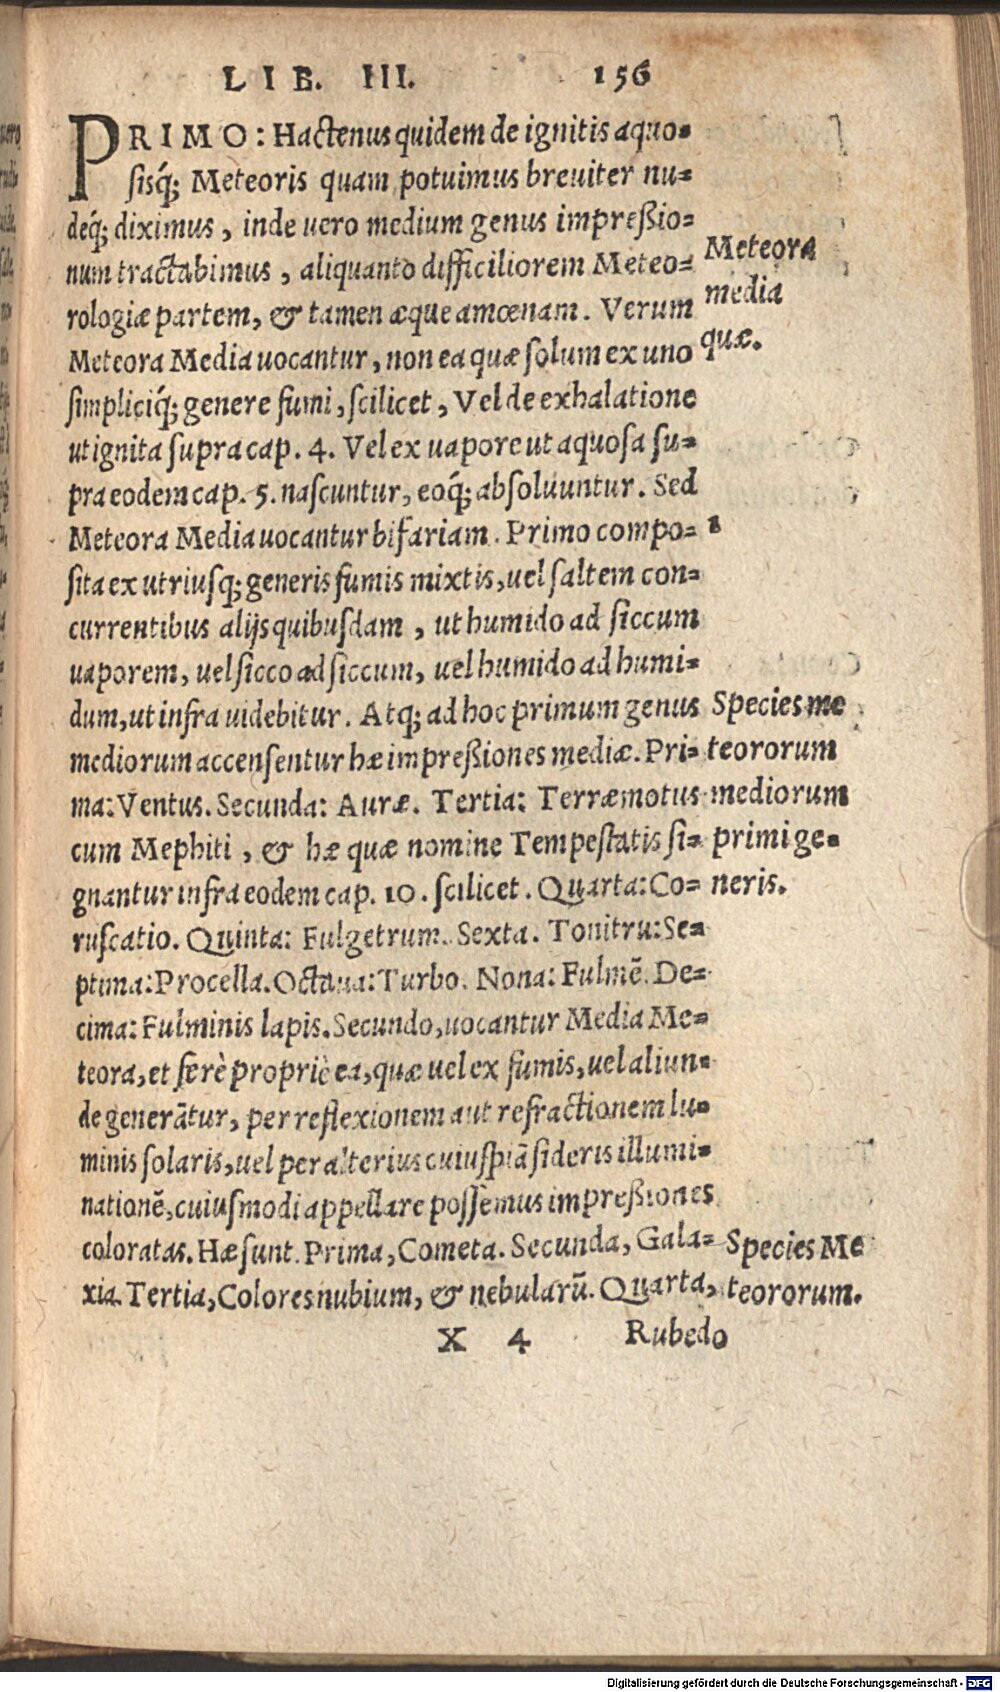 LIB. III. 156
PRIMO: Hactenus quidem de ignitis aquo=
sisq́; Meteoris quam potuimus breuiter nu=
deq́; diximus, inde uero medium genus impreßio=
num tractabimus, aliquanto difficiliorem Meteo=
rologiæ partem, & tamen æque amœnam. Verum
Meteora Media uocantur, non ea quæ solum ex uno
simpliciq́; genere fumi, scilicet, Vel de exhalatione
ut ignita supra cap. 4. Vel ex uapore ut aquosa su=
pra eodem cap. 5. nascuntur, eoq́; absoluuntur. Sed
Meteora Media uocantur bifariam. Primo compo=
sita ex utriusq; generis fumis mixtis, uel saltem con=
currentibus alijs quibusdam, ut humido ad siccum
uaporem, uel sicco ad siccum, uel humido ad humi=
dum, ut infra uidebitur. Atq; ad hoc primum genus
mediorum accensentur hæ impreßiones mediæ. Pri=
ma: Ventus. Secunda: Auræ. Tertia: Terræmotus
cum Mephiti, & hæ quæ nomine Tempestatis si=
gnantur infra eodem cap. 10. scilicet. Quarta: Co=
ruscatio. Quinta: Fulgetrum. Sexta. Tonitru: Se=
ptima: Procella. Octaua: Turbo. Nona: Fulmē. De=
cima: Fulminis lapis. Secundo, uocantur Media Me=
teora, et ferè propriè ea, quæ uel ex fumis, uel aliun=
de generātur, per reflexionem aut refractionem lu=
minis solaris, uel per alterius cuiuspiā sideris illumi=
nationē, cuiusmodi appellare possemus impreßiones
coloratas. Hæ sunt. Prima, Cometa. Secunda, Gala=
xia. Tertia, Colores nubium, & nebularū. Quarta,
X 4 Rubedo
Meteora
media
quæ.
1
Species me
teororum
mediorum
primi ge=
neris.
Species Me
teororum.
Digitalisierung gefördert durch die Deutsche Forschungsgemeinschaft - DFG